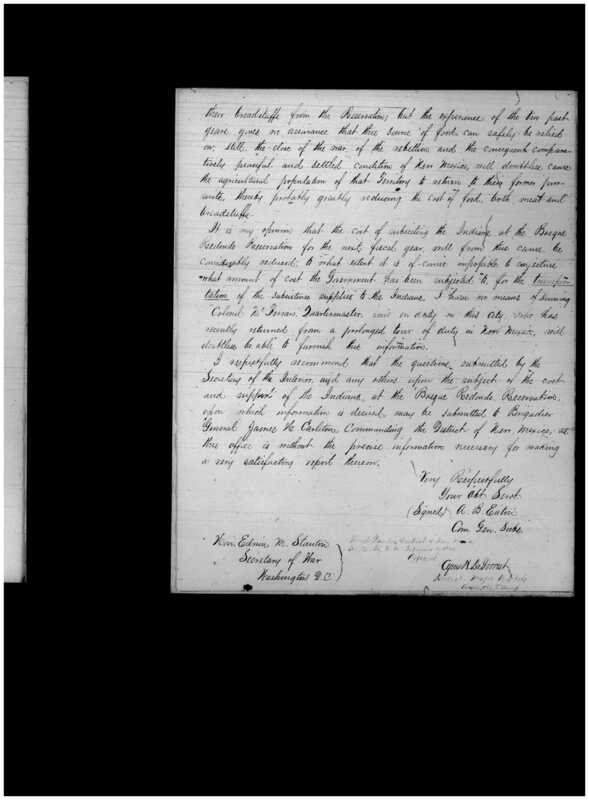 their breadstuffs from the Reservation; but the experience of the two past
years gives no assurance that this source of food can safely be relied
on; still, the close of the war of the rebellion and the consequent compara-
tively peaceful and settled condition of New Mexico, will doubtless cause
the agricultural population of that Territory to return to their former pur-
suits, thereby probably greatly reducing the cost of food, both meat and
breadstuffs.
It is my opinion that the cost of subsisting the Indians at the Bosque
Redondo Reservation for the next fiscal year, will from this cause be
considerably reduced; to what extent it is of course impossible to conjecture
what amount of cost the Government has been subjected to, for the transpor-
tation of the subsistence supplies to the Indians, I have no means of knowing
Colonel Mc Ferran, Quartermaster, now on duty in this city, who has
recently returned from a prolonged tour of duty in New Mexico, will
doubtless be able to furnish this information.
I respectfully recommend that the questions submitted by the
Secretary of the Interior, and any others upon the subject of the cost
and support of the Indians, at the Bosque Redondo Reservation,
upon which information is desired may be submitted to Brigadier
General James H. Carleton, Commanding the District of New Mexico, as
this office is without the precise information necessary for making
a very satisfactory report thereon.
Very Respectfully
Your Obt Servt
(Signed) A. B. Eaton
Com. Gen. Subs.
Hon. Edwin M. Stanton
Secretary of War
Washington D.C.
Cyrus H. De Forrest